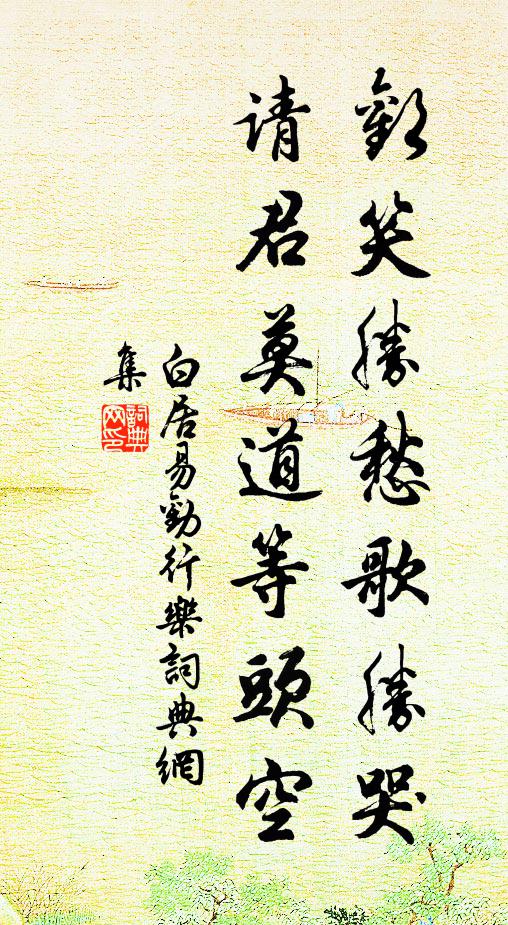 歡笑勝愁歌勝哭
請君莫道等頭空
白居易勸行樂詞典網
集
詞典
网印